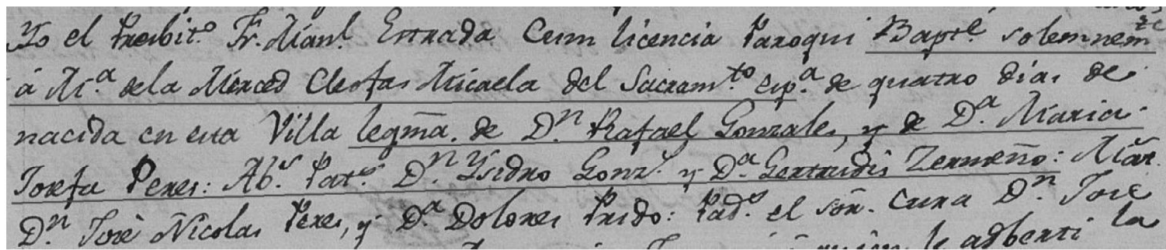 Yo el Presbit.o Fr. Man.l Estrada Cum licencia Paroqui Bapt.é solemnem
á M.a dela Merced Cleofas Micaela del Sacram.to esp.a de quatro dias de
nacida en esta Villa legma. de D.n Rafael Gonzales, y de D.a Maria
Josefa Peres: Ab.s Pat.s D.n Ysidro Gonz.s y D.a Gertrudis Zermeño: Mãt.
D.n José Nicolas Peres, y D.a Dolores Prido: Pad.o el Señ. Cura D.n José
le adberti la